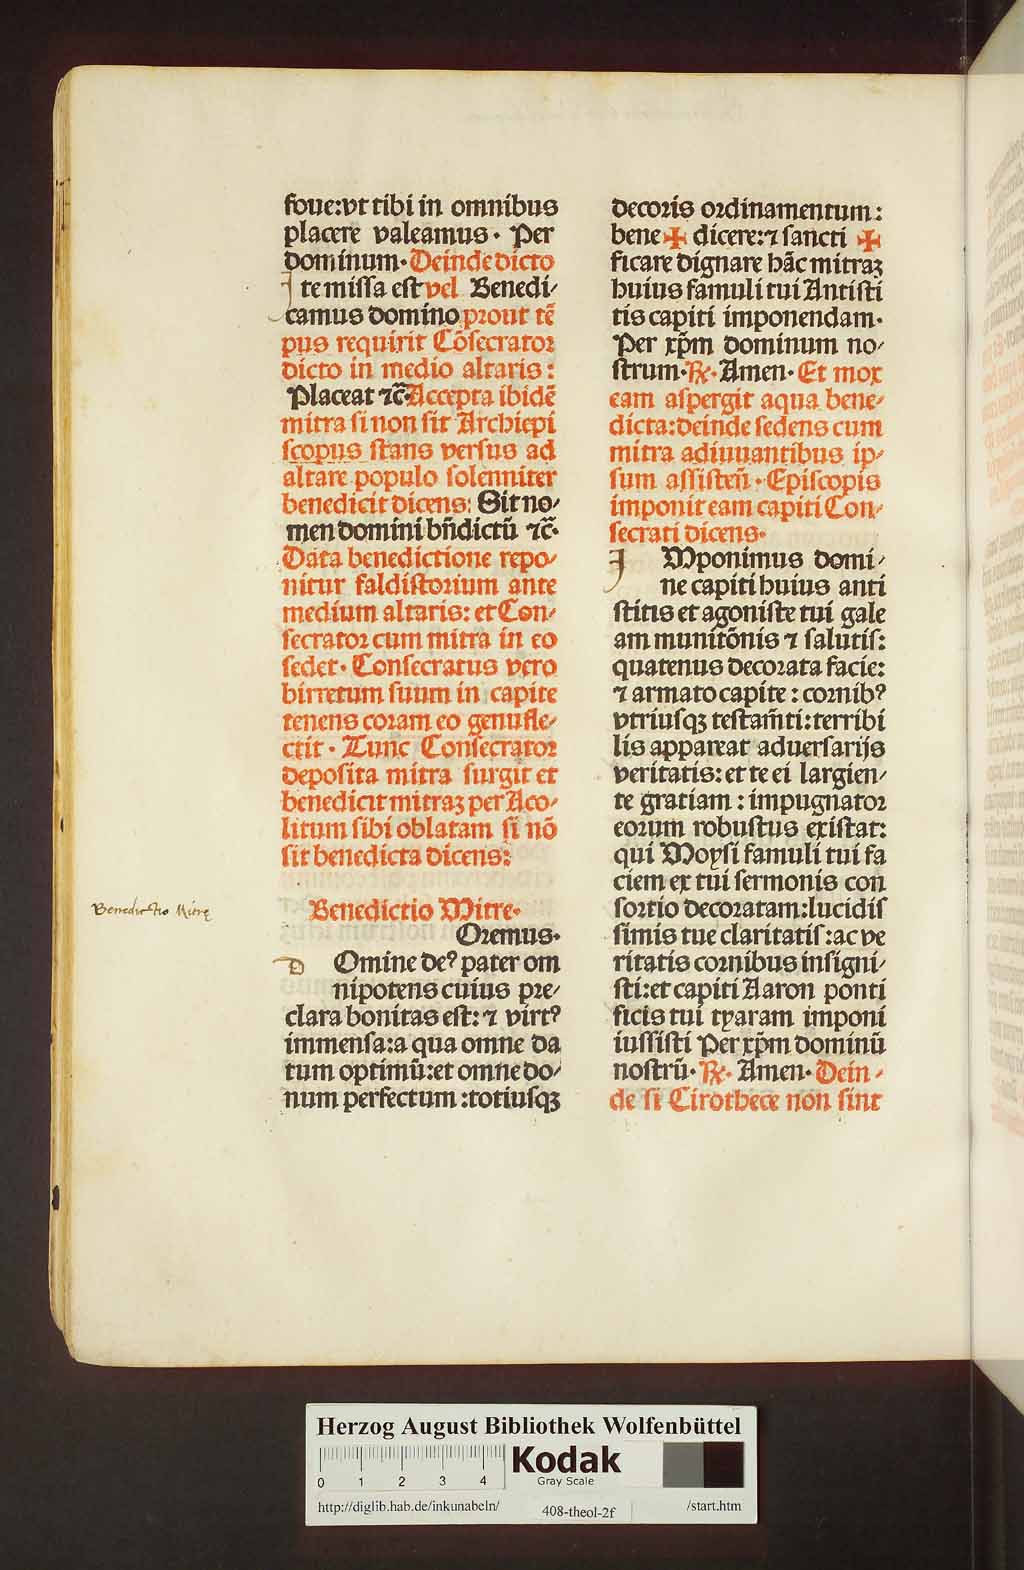 foue:vt tibi in omnibus
placere valeamus. Per
dominum. Deinde dicto
Ite missa est vel Benedi-
camus domino prout tē
pus requirit Cōsecrator
dicto in medio altaris:
Placeat ⁊c̄. Accepta ibidē
mitra si non sit Archiepi
scopus stans versus ad
altare populo solenniter
benedicit dicens: Sit no-
men domini bn̄dictū ⁊c̄.
Data benedictione repo-
nitur faldistorium ante
medium altaris: et Con-
secrator cum mitra in eo
sedet. Consecratus vero
birretum suum in capite
tenens coram eo genufle-
ctit. Tunc Consecrator
deposita mitra surgit et
benedicit mitraꝫ per Aco-
litum sibi oblatam si nō
sit benedicta dicens:
Benedictio Mitrę
Benedictio Mitre.
Oremus.
D Omine deꝰ pater om
nipotens cuius pre-
clara bonitas est: ⁊ virtꝰ
immensa: a qua omne da
tum optimū: et omne do-
num perfectum: totiusqꝫ
decoris ordinamentum:
bene✠dicere: ⁊ sancti ✠
ficare dignare hāc mitraꝫ
huius famuli tui Antisti
tis capiti imponendam.
Per xp̄m dominum no-
strum. ℞. Amen. Et mox
eam aspergit aqua bene-
dicta: deinde sedens cum
mitra adiuuantibus ip-
sum assisteñ. Episcopis
imponit eam capiti Con-
secrati dicens.
I Mponimus domi-
ne capiti huius anti
stitis et agoniste tui gale
am munitōnis ⁊ salutis:
quatenus decorata facie:
⁊ armato capite: cornibꝰ
vtriusqꝫ testam̄ti: terribi
lis appareat aduersarijs
veritatis: et te ei largien-
te gratiam: impugnator
eorum robustus existat:
qui Moysi famuli tui fa
ciem ex tui sermonis con
sortio decoratam: lucidis
simis tue claritatis: ac ve
ritatis cornibus insigni-
sti: et capiti Aaron ponti
ficis tui tyaram imponi
iussisti Per xp̄m dominū
nostrū. ℞. Amen. Dein-
de si Cirothece non sint
Herzog August Bibliothek Wolfenbüttel
0 1 2 3 4
Kodak
Gray Scale
http://diglib.hab.de/inkunabeln/ 408-theol-2f /start.htm